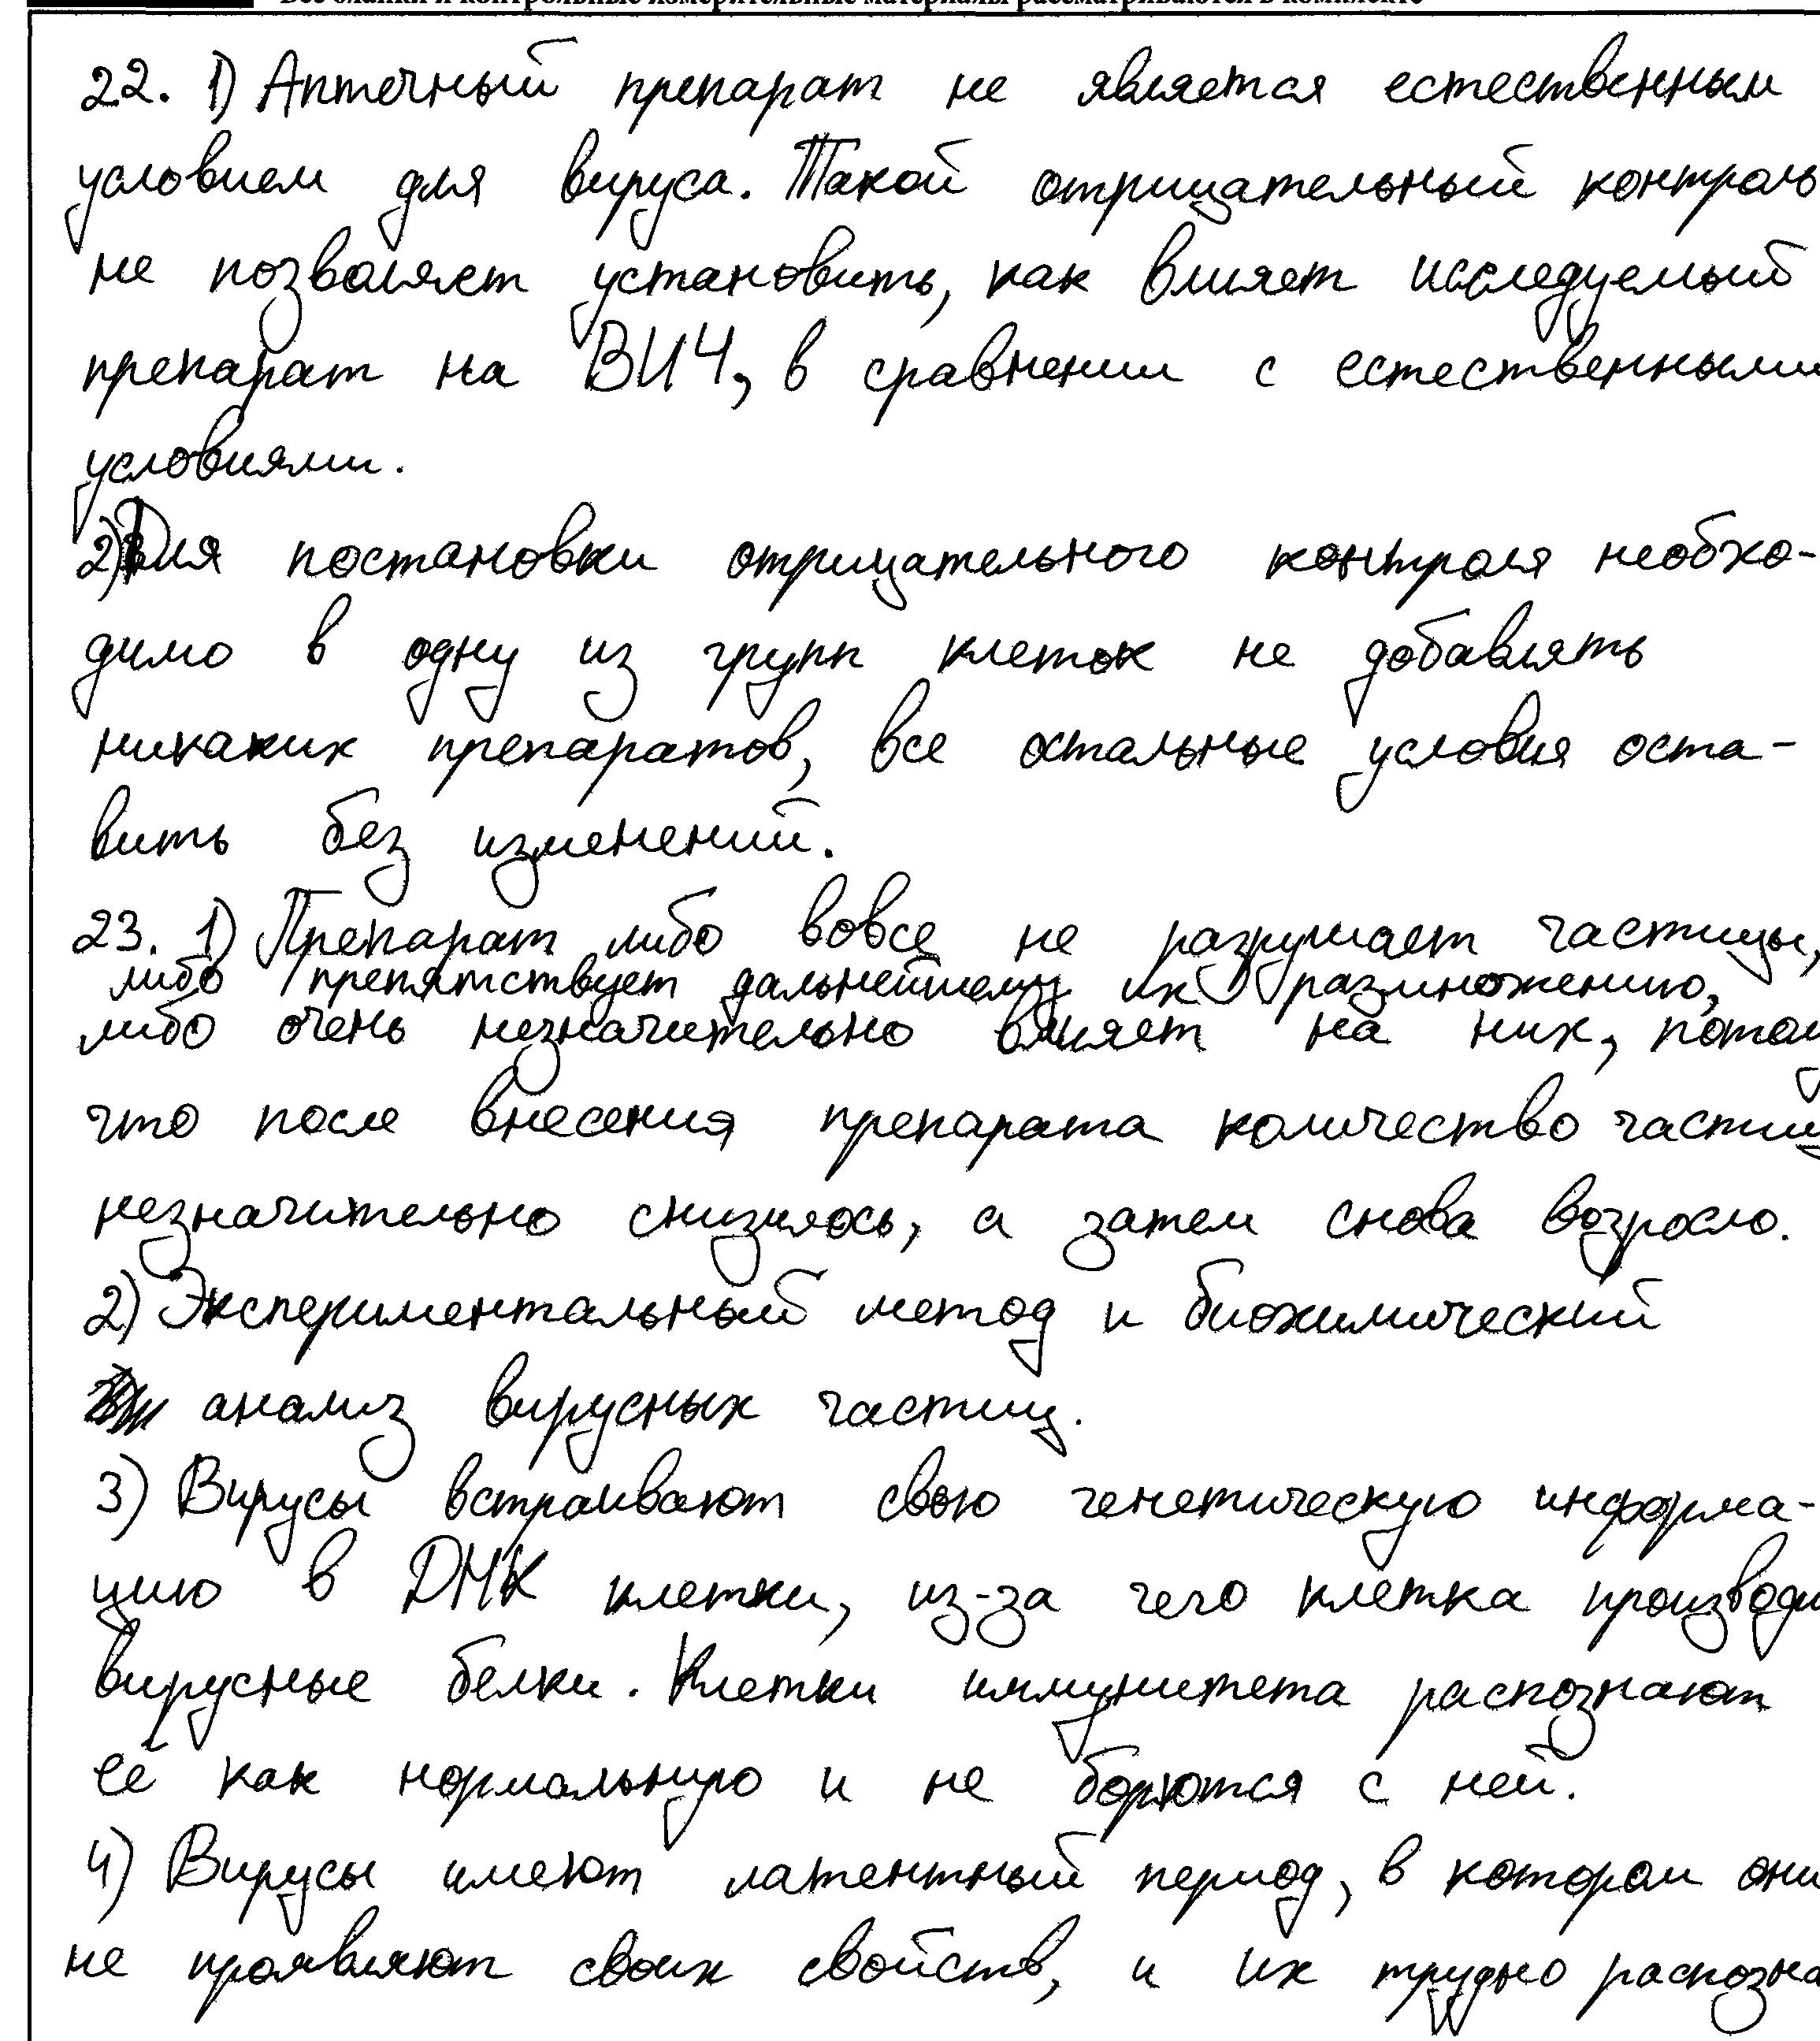 Все бланки и контрольные измерительные материалы рассматриваются в комплекте
22. 1) Аптечный препарат не является естественным
условием для вируса. Такой отрицательный контроль
не позволяет установить, как влияет исследуемый
препарат на ВИЧ, в сравнении с естественными
условиями.
2) Для постановки отрицательного контроля необхо-
димо в одну из групп клеток не добавлять
никаких препаратов, все остальные условия оста-
вить без изменений.
23. 1) Препарат либо вовсе не разрушает частицы,
либо препятствует дальнейшему их размножению,
либо очень незначительно влияет на них, потому
что после внесения препарата количество частиц
незначительно снизилось, а затем снова возросло.
2) Экспериментальный метод и биохимический
анализ вирусных частиц.
3) Вирусы встраивают свою генетическую информа-
цию в ДНК клетки, из-за чего клетка производи
вирусные белки. Клетки иммунитета распознают
её как нормальную и не борются с ней.
4) Вирусы имеют латентный период, в котором они
не проявляют своих свойств, и их трудно распозна